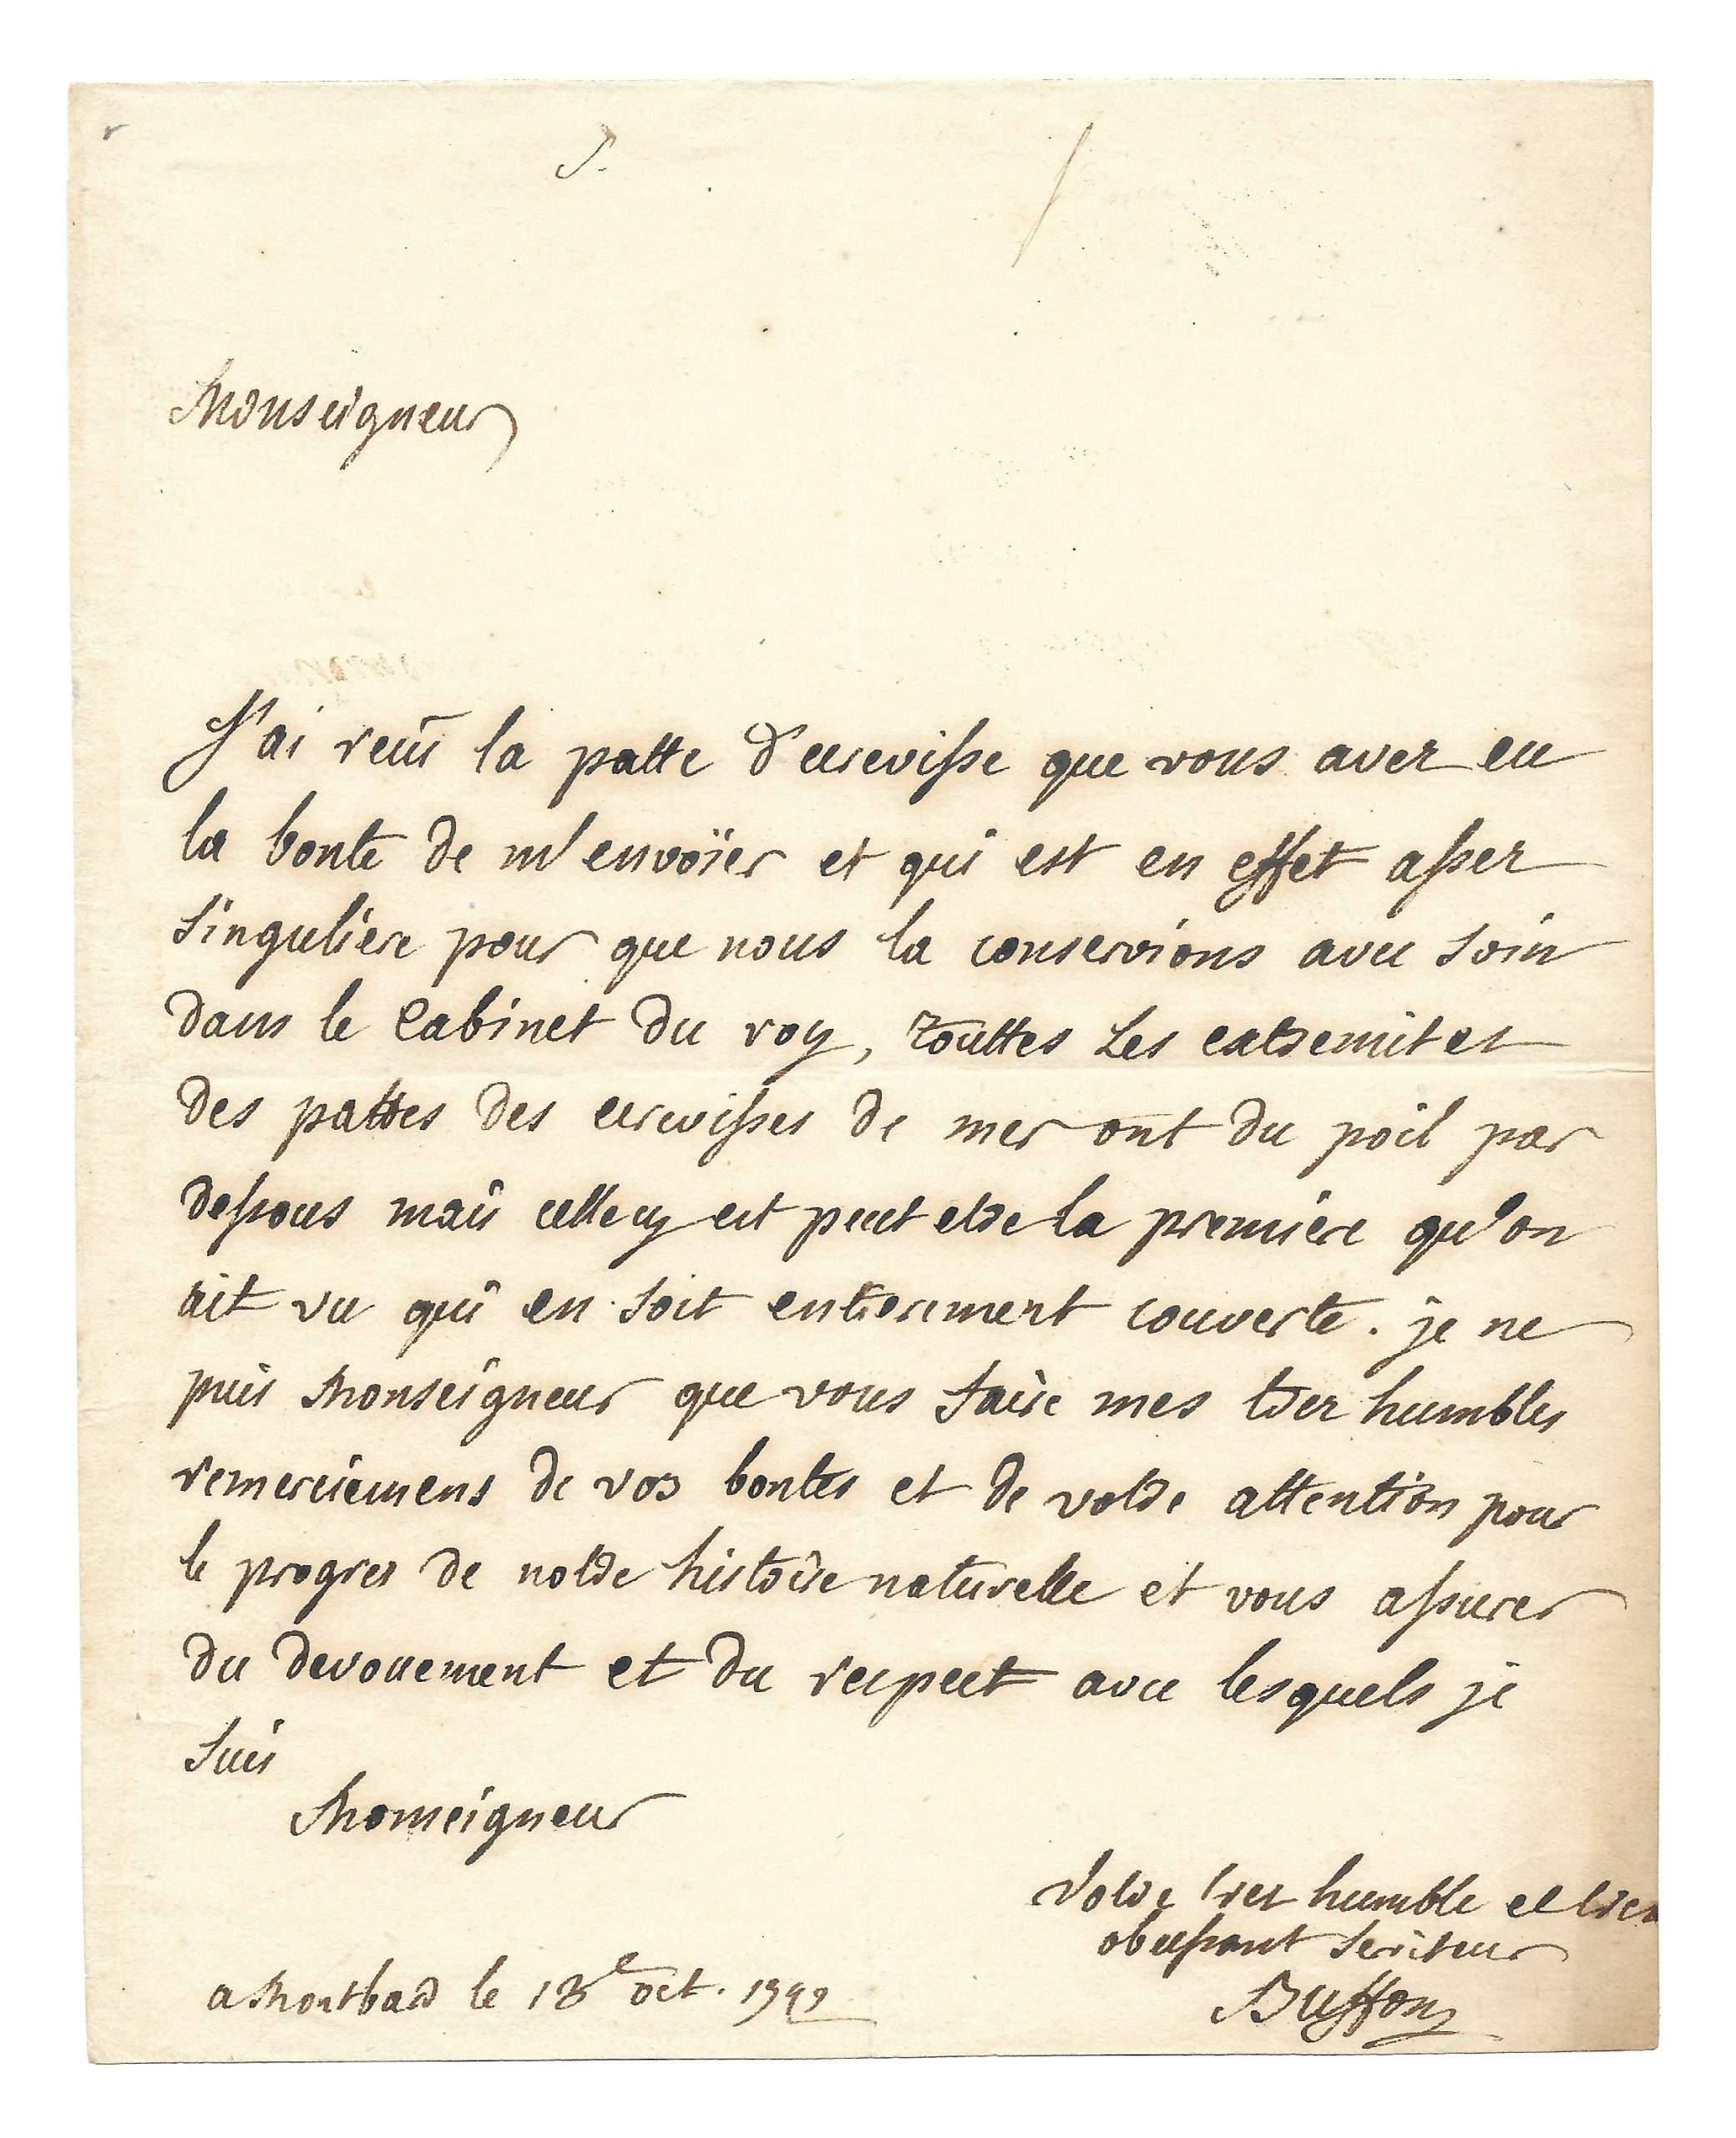 Monseigneur
J'ai reçu la patte d'ecrevisse que vous avez eu
la bonté de m'envoïer et qui est en effet assez
singuliere pour que nous la conservions avec soin
dans le Cabinet du roy, touttes les extremites
des pattes des ecrevisses de mer ont du poil par
dessous mais celle cy est peut etre la premiere qu'on
ait vu qui en soit entierement couverte. je ne
puis Monseigneur que vous faire mes tres humbles
remerciemens de vos bontés et de votre attention pour
le progres de notre histoire naturelle et vous assurer
du devouement et du respect avec lesquels je
suis
Monseigneur
Votre tres humble et tres
obeissant serviteur
Buffon
a Montbard le 18e oct.